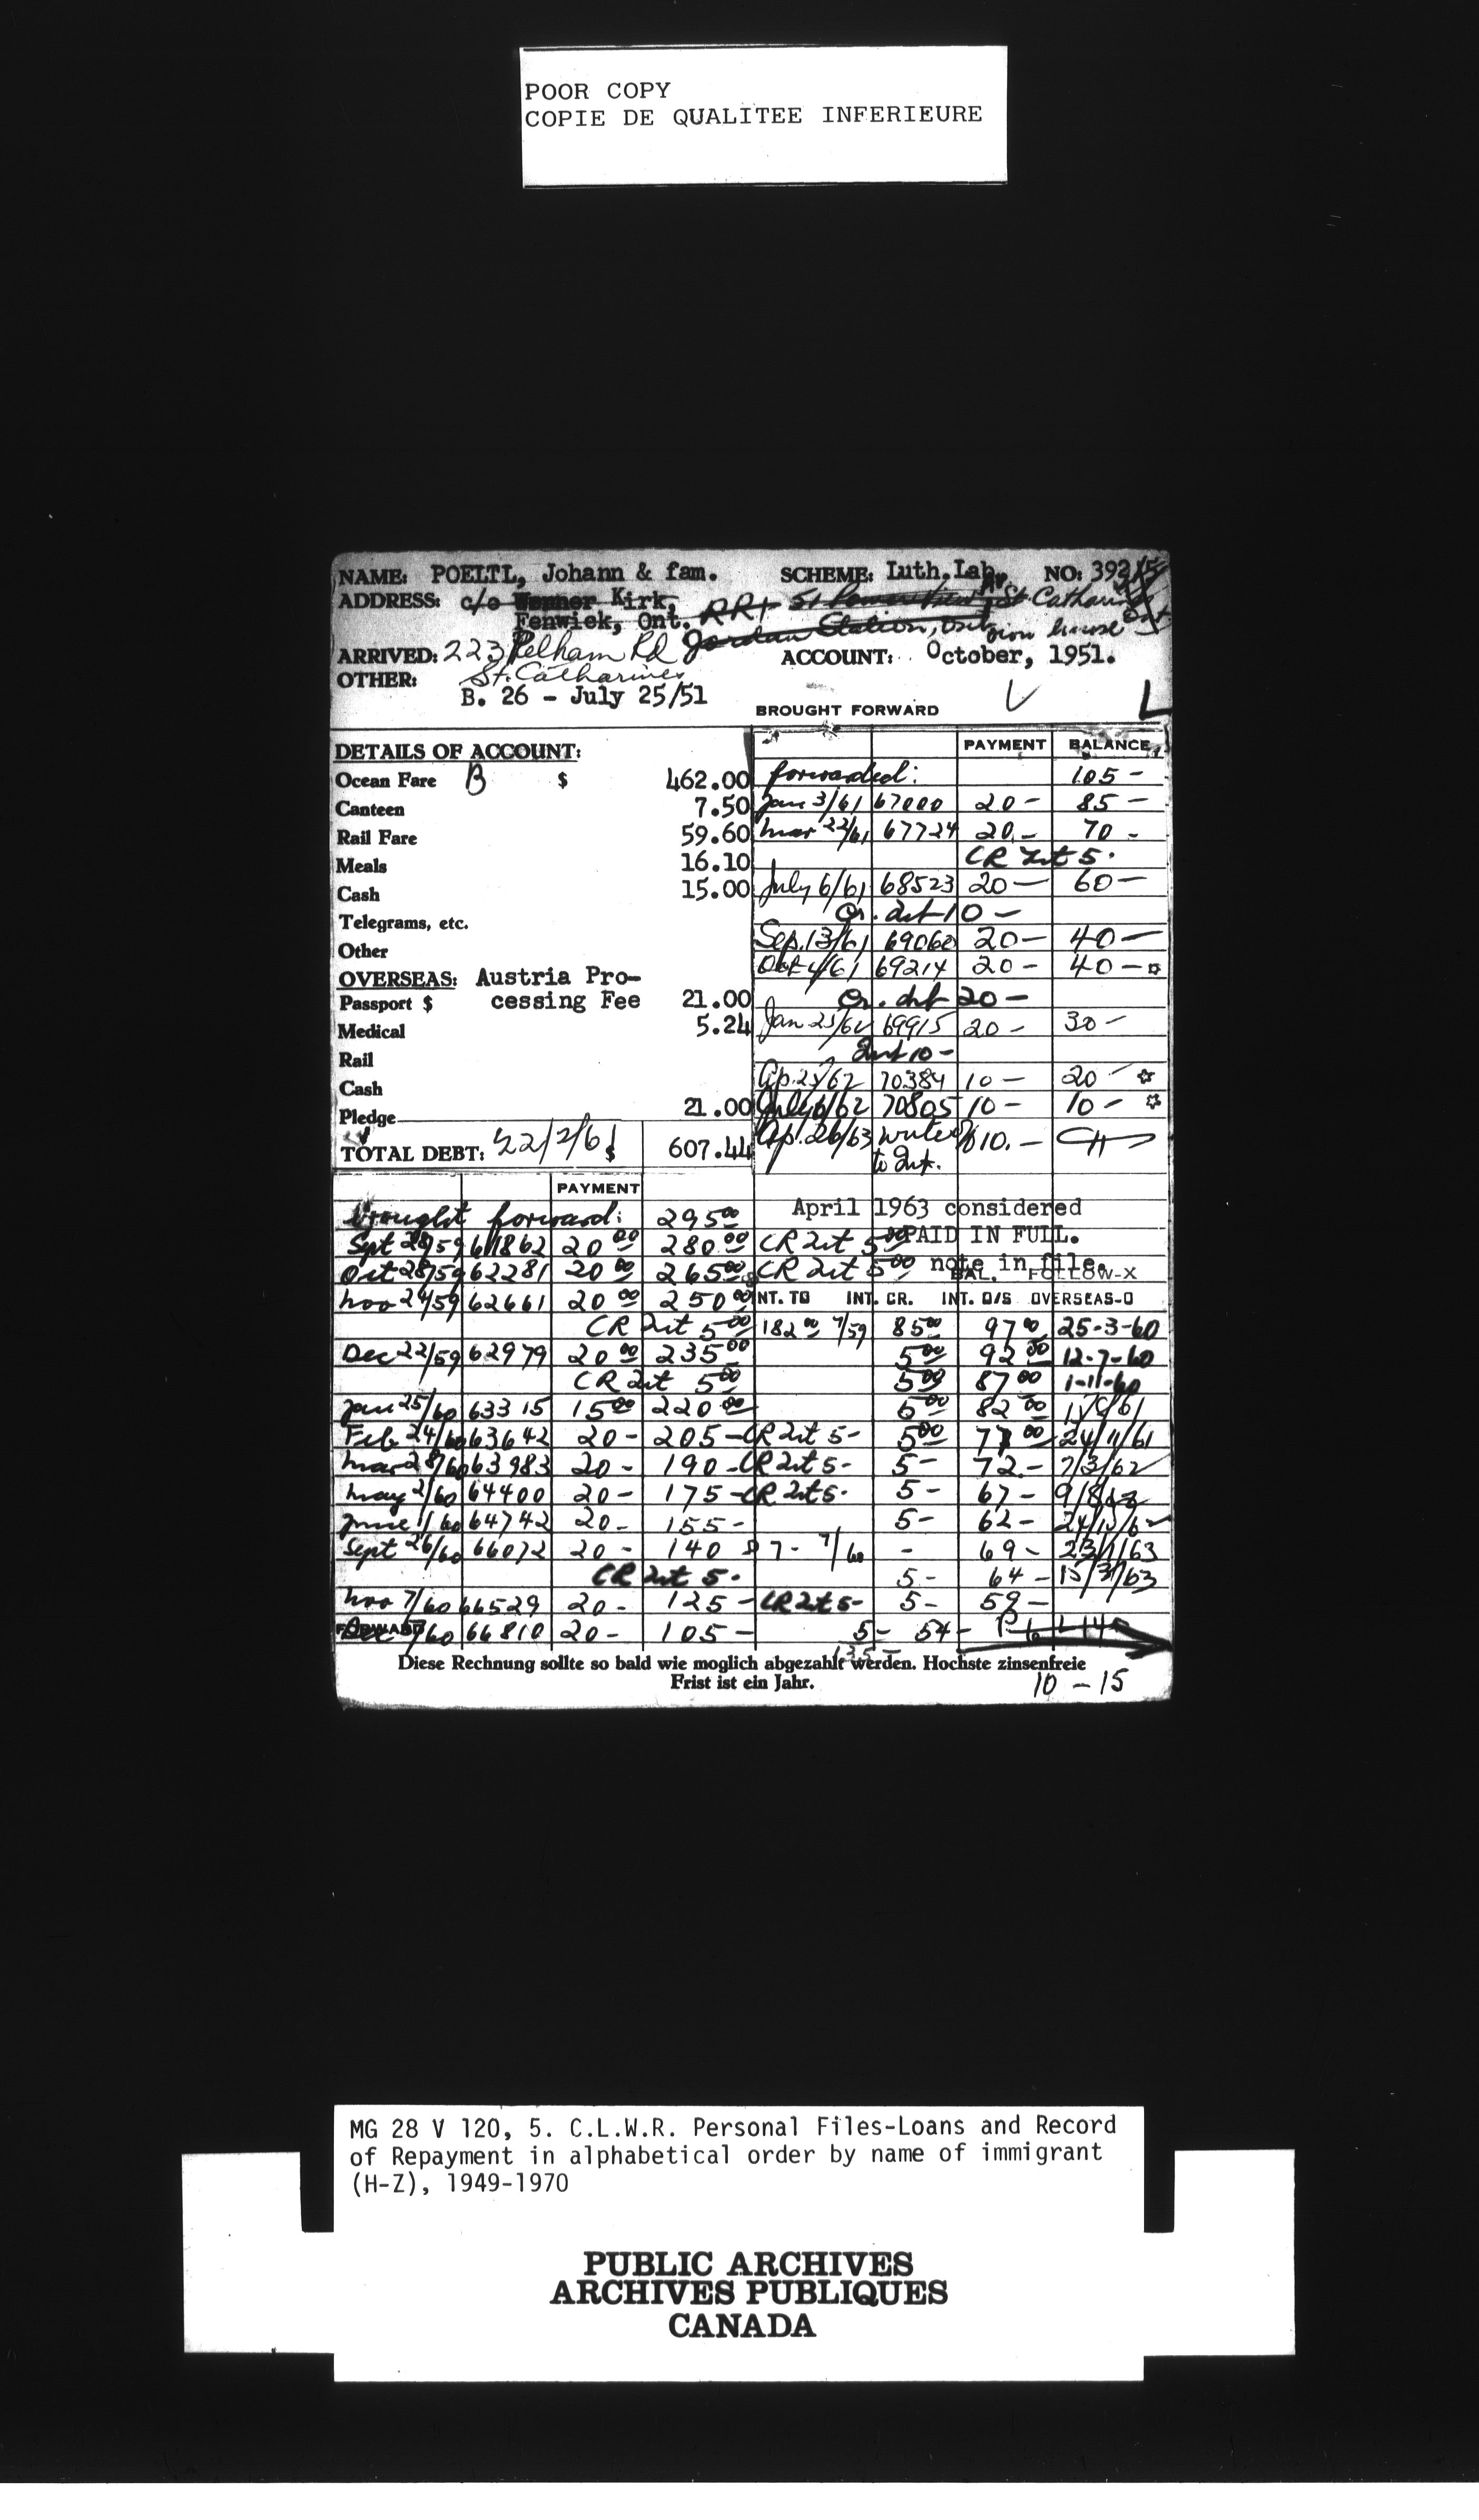 POOR COPY
COPIE DE QUALITEE INFERIEURE
NAME: POELTL, Johann & fam. SCHEME: Luth. Lab. NO: 392
ADDRESS: c/o Kirk, St. Catharines
Fenwick, Ont. RR1 Jordan Station, Ont
ARRIVED: 223 Pelham Rd ACCOUNT: October, 1951.
OTHER: St. Catharines
B. 26 - July 25/51
BROUGHT FORWARD
DETAILS OF ACCOUNT:
Ocean Fare B $ 462.00
Canteen 7.50
Rail Fare 59.60
Meals 16.10
Cash 15.00
Telegrams, etc.
Other
OVERSEAS: Austria Pro-
Passport $ cessing Fee 21.00
Medical 5.24
Rail
Cash
Pledge 21.00
TOTAL DEBT: 22/2/61 $ 607.44
PAYMENT BALANCE
forwarded: 105 -
Jan 3/61 67000 20 - 85 -
Mar 22/61 67724 20.- 70 -
CR Int 5.
July 6/61 68523 20 - 60 -
Cr. Int 10 -
Sep. 13/61 69060 20 - 40 -
Oct 4/61 69214 20 - 40 -
Cr. Int 20 -
Jan 25/62 69915 20 - 30 -
Int 10 -
Ap. 25/62 70384 10 - 20 -
July 6/62 70805 10 - 10 -
Ap. 26/63 write off 10. -
to Int.
April 1963 considered
PAID IN FULL.
note in file.
PAYMENT
brought forward: 295 00
Sept 28/59 61862 20 00 280 00 CR Int 5 00
Oct 28/59 62281 20 00 265 00 CR Int 5 00
BAL. FOLLOW-X
Nov 24/59 62661 20 00 250 00 INT. TO INT. CR. INT. O/S OVERSEAS-O
CR Int 5 00 182 00 7/59 85 00 97 00 25-3-60
Dec 22/59 62979 20 00 235 00 5 00 92 00 12-7-60
CR Int 5 00 5 00 87 00 1-11-60
Jan 25/60 63315 15 00 220 00 5 00 82 00
Feb 24/60 63642 20 - 205 - CR Int 5 - 5 00 77 00 24/11/61
Mar 28/60 63983 20 - 190 - CR Int 5 - 5 - 72. - 7/3/62
May 2/60 64400 20 - 175 - CR Int 5. 5 - 67 -
June 1/60 64742 20 - 155 - 5 - 62 -
Sept 26/60 66072 20 - 140 7 - 7/60 - 69 - 23/1/63
CR Int 5. 5 - 64 - 15/3/63
Nov 7/60 66529 20 - 125 - CR Int 5 - 5 - 59 -
FORWARD Dec /60 66810 20 - 105 - 5 - 54 -
Diese Rechnung sollte so bald wie moglich abgezahlt werden. Hochste zinsenfreie
Frist ist ein Jahr. 10 - 15
MG 28 V 120, 5. C.L.W.R. Personal Files-Loans and Record
of Repayment in alphabetical order by name of immigrant
(H-Z), 1949-1970
PUBLIC ARCHIVES
ARCHIVES PUBLIQUES
CANADA